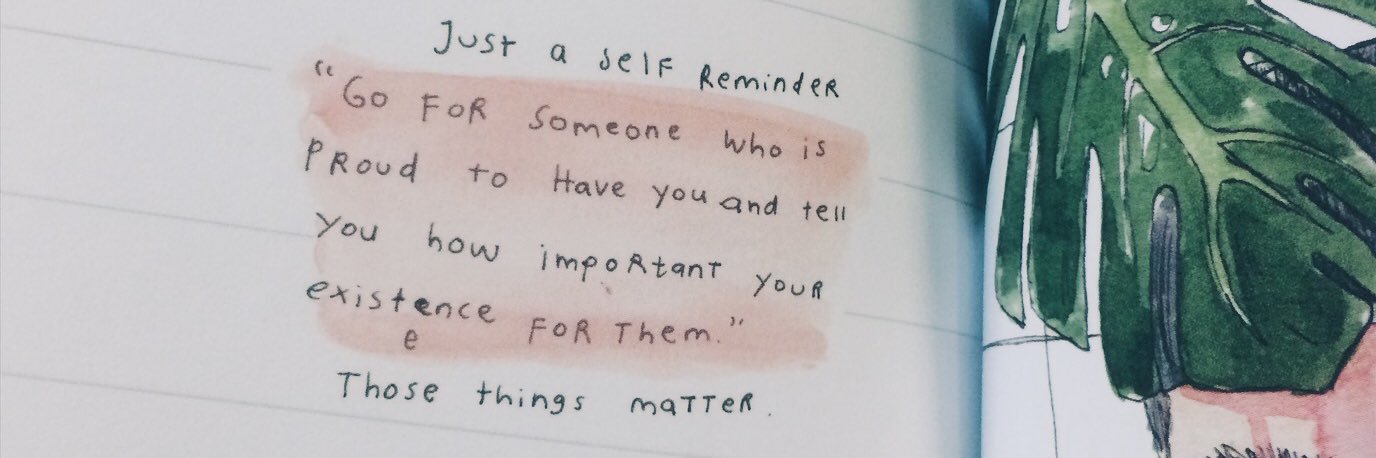 Just a self Reminder
"Go FOR someone who is
PRoud to Have you and tell
you how impoRtant youR
existence FOR Them."
e
Those things maTTeR.